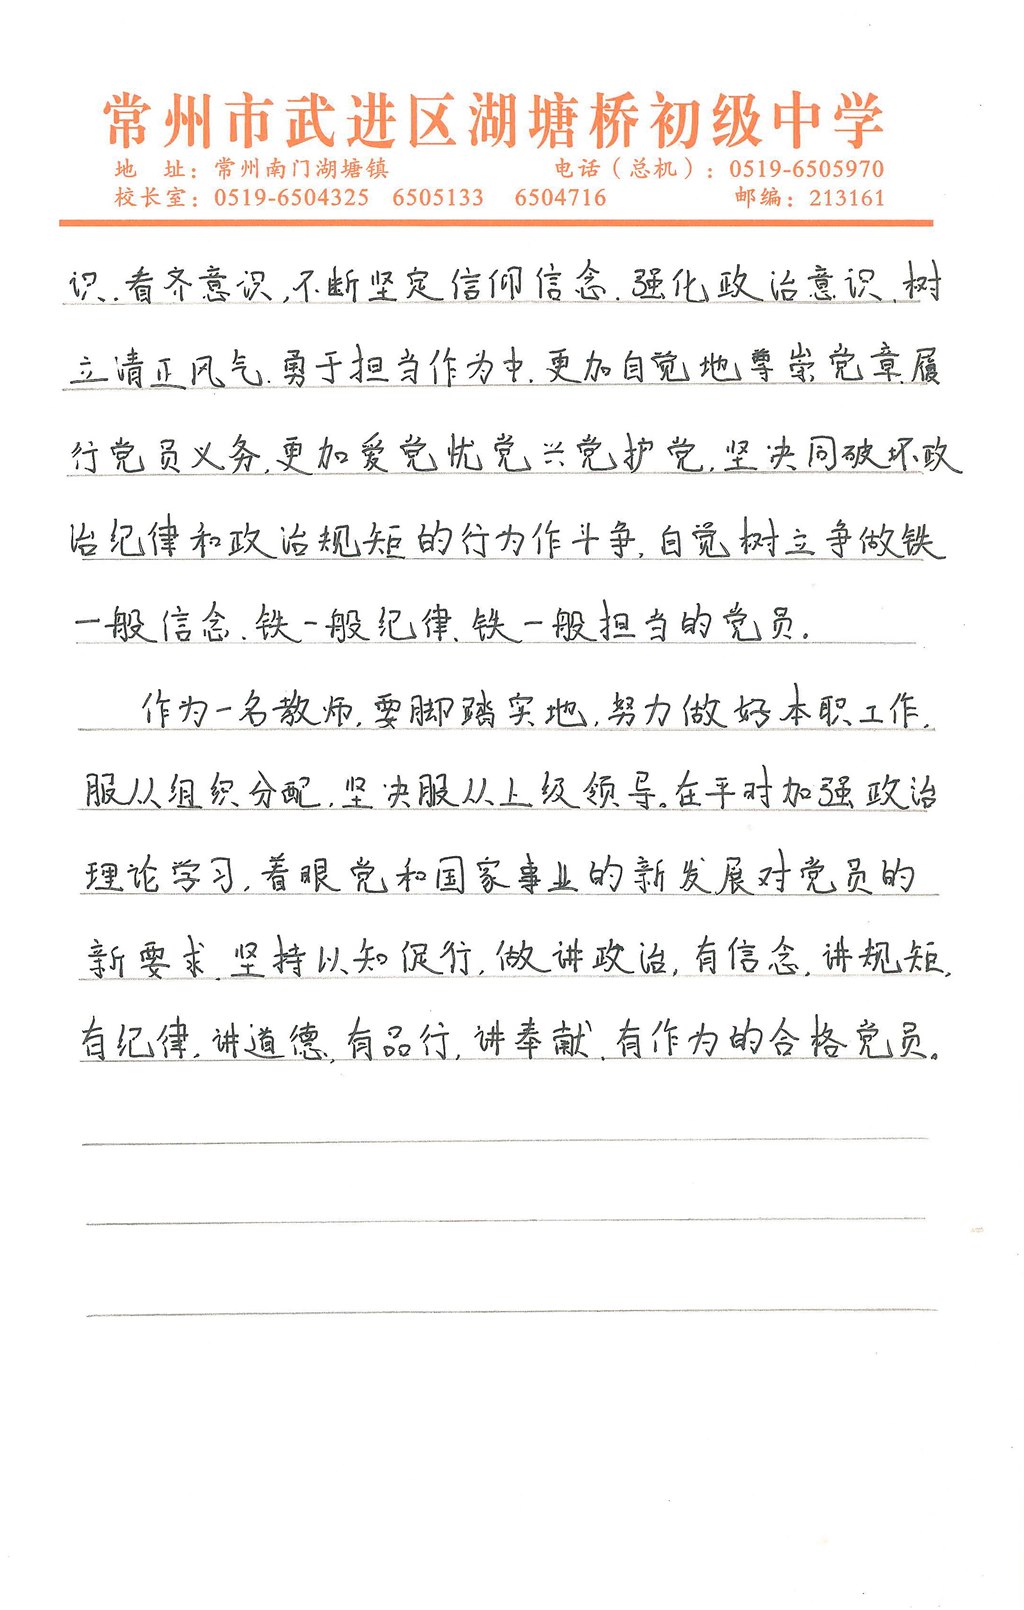 常州市武进区湖塘桥初级中学
地　址：常州南门湖塘镇　电话（总机）：0519-6505970
校长室：0519-6504325　6505133　6504716　邮编：213161
识、看齐意识，不断坚定信仰信念、强化政治意识、树
立清正风气、勇于担当作为中，更加自觉地尊崇党章、履
行党员义务，更加爱党忧党兴党护党，坚决同破坏政
治纪律和政治规矩的行为作斗争，自觉树立争做铁
一般信念、铁一般纪律、铁一般担当的党员。
作为一名教师，要脚踏实地，努力做好本职工作，
服从组织分配，坚决服从上级领导。在平时加强政治
理论学习，着眼党和国家事业的新发展对党员的
新要求，坚持以知促行，做讲政治，有信念，讲规矩，
有纪律，讲道德，有品行，讲奉献，有作为的合格党员。